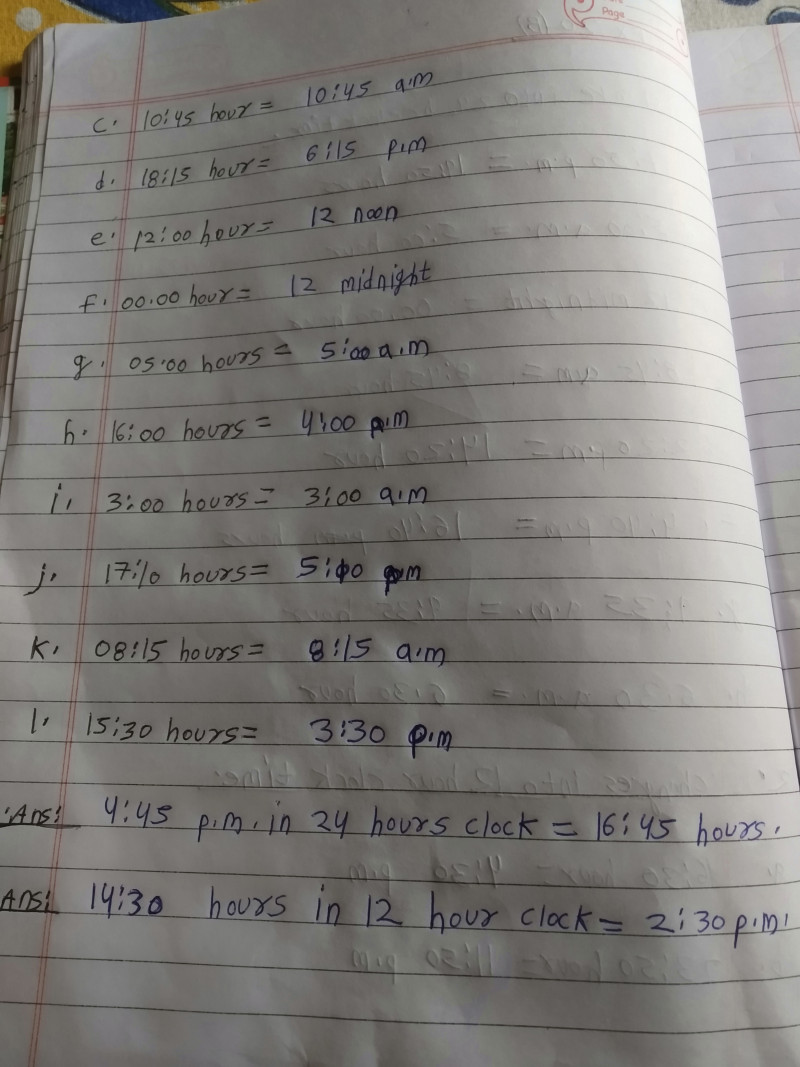 Page
c. 10:45 hour = 10:45 a.m
d. 18:15 hour = 6:15 p.m
e. 12:00 hour = 12 noon
f. 00.00 hour = 12 midnight
g. 05.00 hours = 5:00 a.m
h. 16:00 hours = 4:00 p.m
i. 3:00 hours = 3:00 a.m
j. 17:10 hours = 5:10 pm
k. 08:15 hours = 8:15 a.m
l. 15:30 hours = 3:30 p.m
Ans: 4:45 p.m. in 24 hours clock = 16:45 hours.
Ans: 14:30 hours in 12 hour clock = 2:30 p.m.